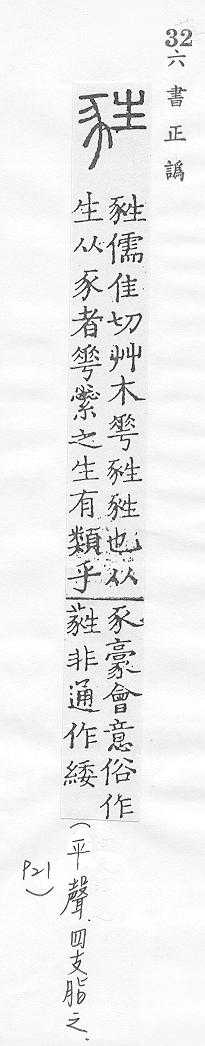 32
六書正譌
甤
甤儒隹切艸木𠌶甤甤也从
生从豕者𠌶繠之生有類乎
豕豪會意俗作
蕤非通作緌
(平聲.四支脂之.
P21)